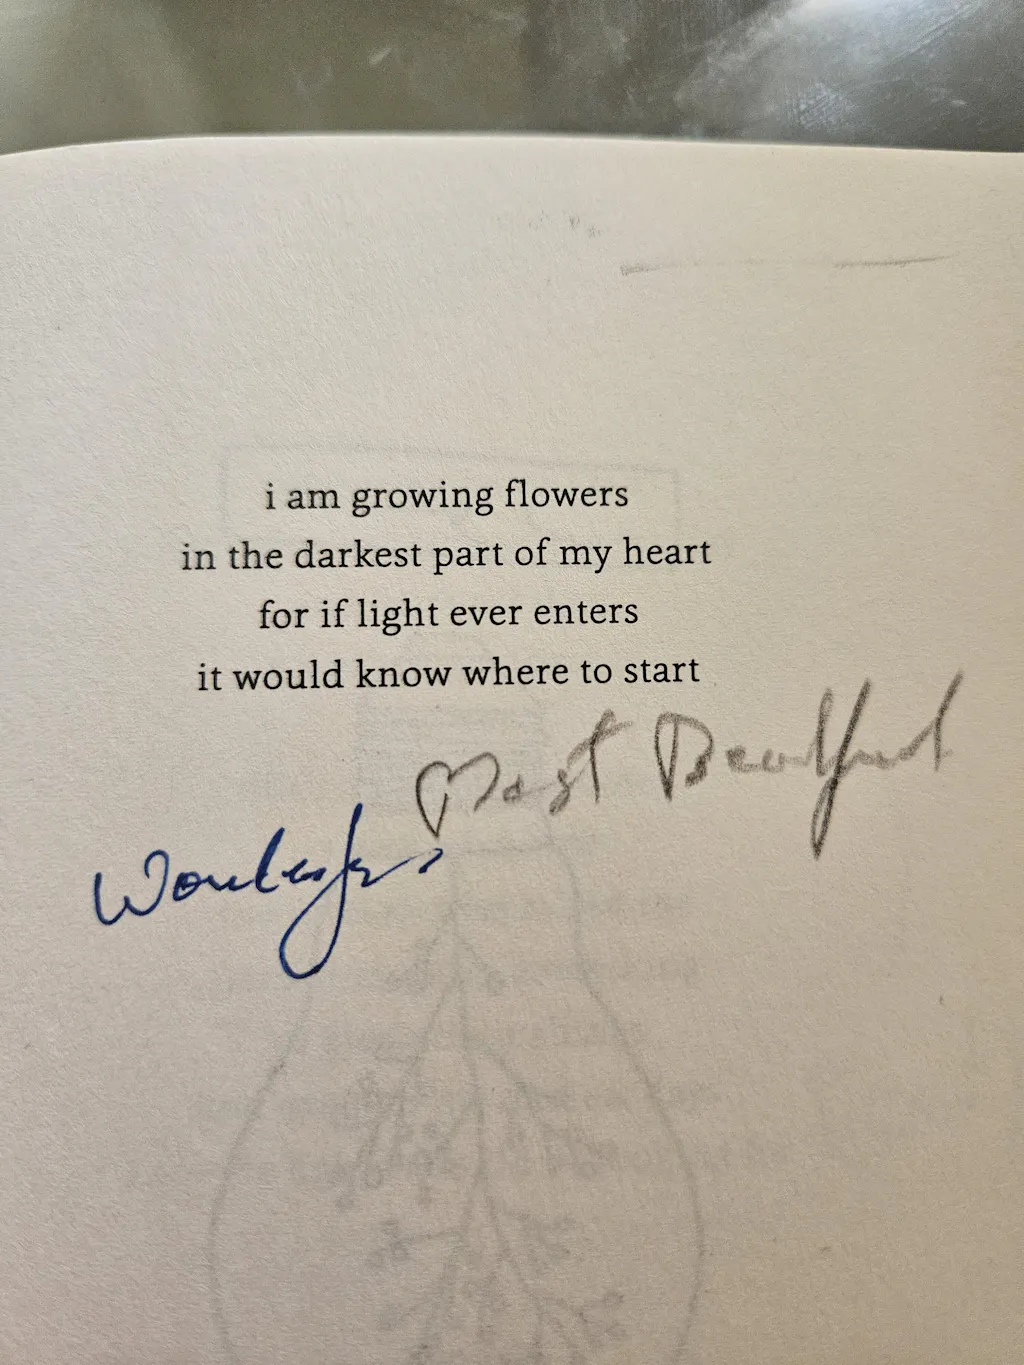 i am growing flowers
in the darkest part of my heart
for if light ever enters
it would know where to start
Most Beautiful
Wonderful